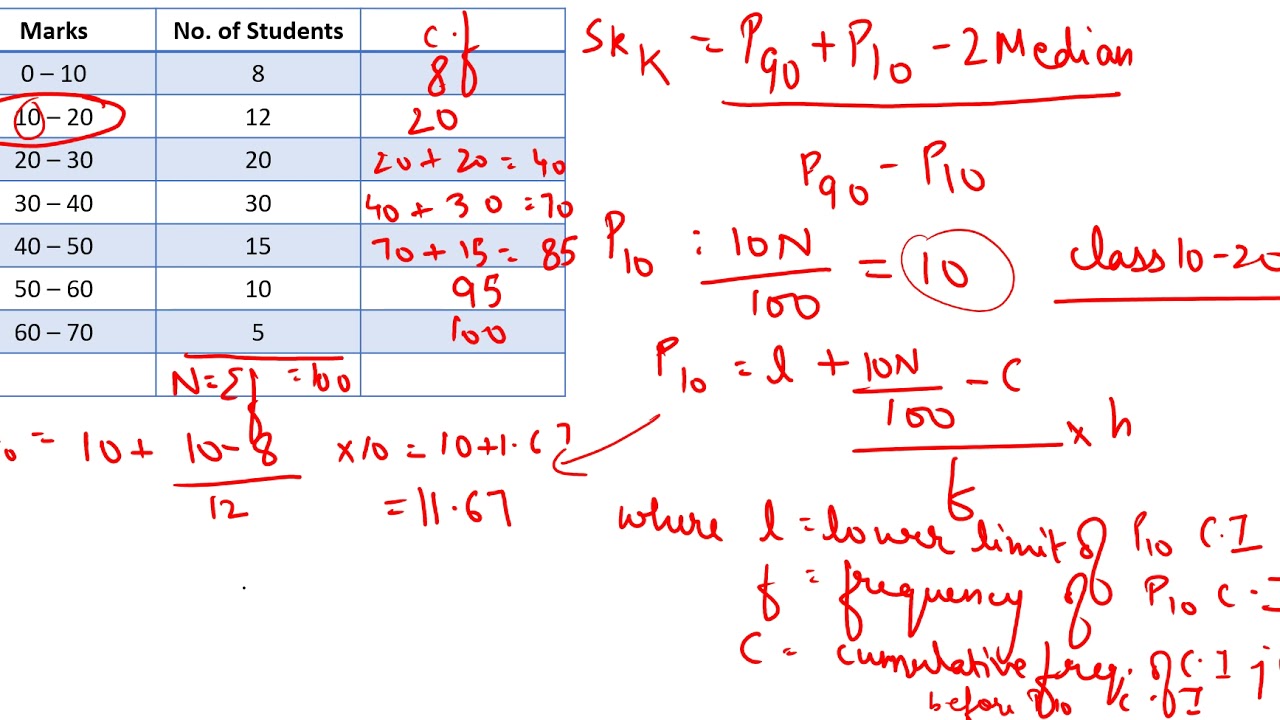 Marks No. of Students c.f
0 – 10 8 8
10 – 20 12 20
20 – 30 20 20 + 20 = 40
30 – 40 30 40 + 30 = 70
40 – 50 15 70 + 15 = 85
50 – 60 10 95
60 – 70 5 100
N = Σf = 100
0 = 10 + 10 - 8 / 12 × 10 = 10 + 1.67
= 11.67
Sk K = P90 + P10 - 2 Median
P90 - P10
P10 : 10N / 100 = 10 class 10 - 20
P10 = l + 10N / 100 - C / f × h
where l = lower limit of P10 C.I
f = frequency of P10 C.I
C = cumulative freq. of C.I j
before P10 C.I